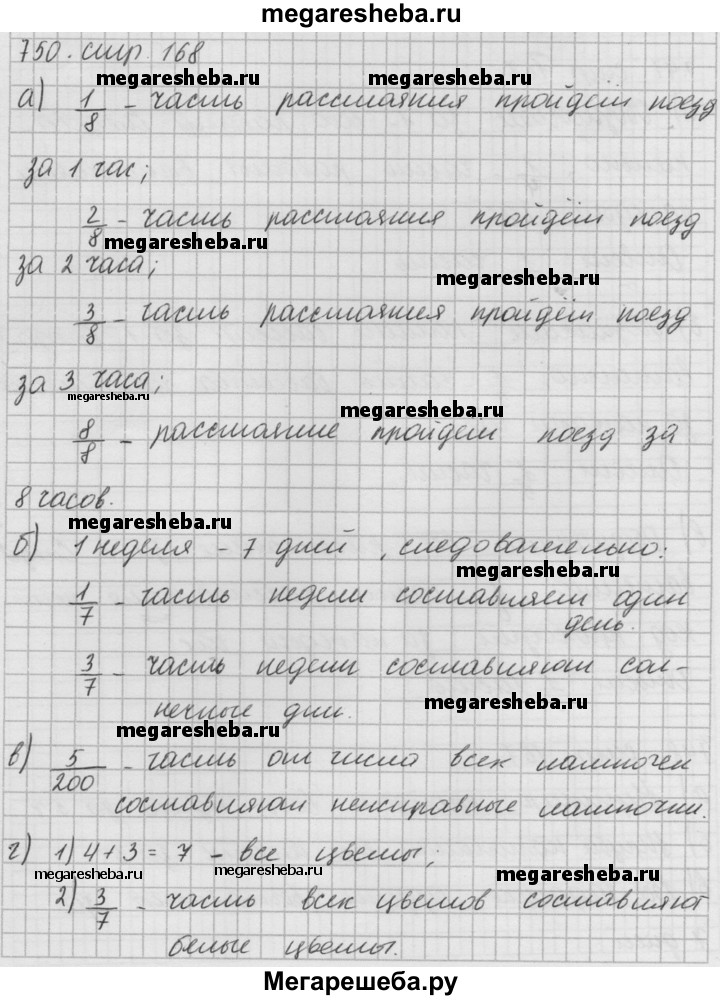 megaresheba.ru
750. стр. 168
megaresheba.ru megaresheba.ru
а) 1/8 - часть расстояния пройдёт поезд
за 1 час;
2/8 - часть расстояния пройдёт поезд
megaresheba.ru
за 2 часа;
megaresheba.ru
3/8 - часть расстояния пройдём поезд
за 3 часа;
megaresheba.ru
megaresheba.ru
8/8 - расстояние пройдет поезд за
8 часов.
megaresheba.ru
б) 1 неделя - 7 дней, следовательно:
megaresheba.ru
1/7 - часть недели составляет один
день.
3/7 - часть недели составляют сол-
megaresheba.ru
нечные дни.
megaresheba.ru
в) 5/200 - часть от числа всех лампочек
составляют неисправные лампочки.
г) 1) 4 + 3 = 7 - все цветы;
megaresheba.ru megaresheba.ru megaresheba.ru
2) 3/7 - часть всех цветов составляют
белые цветы.
Мегарешеба.ру